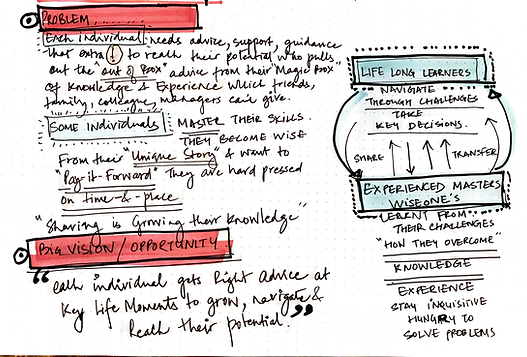 PROBLEM
Each individual needs advice, support, guidance
that extra ! to reach their potential who pulls
out the "out of Box" advice from their "Magic Box"
of knowledge & Experience which friends,
family, colleague, managers can't give.
SOME INDIVIDUALS MASTER THEIR SKILLS.
THEY BECOME WISE
From their "Unique Story" & want to
"Pay-it-Forward" They are hard pressed
on time-&-place
"Sharing is Growing their knowledge"
BIG VISION / OPPORTUNITY
"each individual gets Right Advice at
Key Life Moments to grow, navigate &
Reach their potential."
LIFE LONG LEARNERS
NAVIGATE
THROUGH CHALLENGES
TAKE
KEY DECISIONS.
SHARE TRANSFER
EXPERIENCED MASTERS
WISEONE'S
LEARNT FROM
THEIR CHALLENGES
"HOW THEY OVERCOME"
KNOWLEDGE
EXPERIENCE
STAY INQUISITIVE
HUNGRY TO
SOLVE PROBLEMS